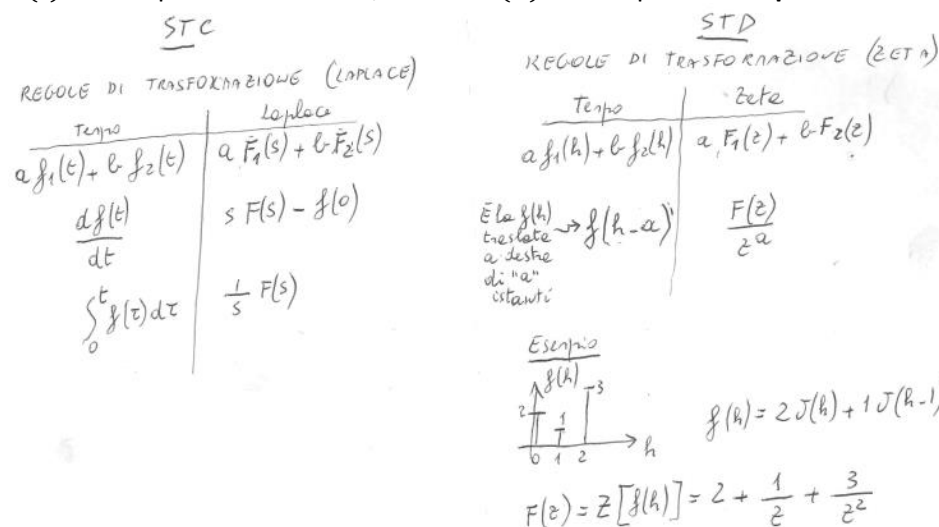 STC
REGOLE DI TRASFORMAZIONE (LAPLACE)
Tempo | Laplace
a f₁(t) + b f₂(t) | a F₁(s) + b F₂(s)
df(t)/dt | s F(s) - f(0)
∫₀ᵗ f(τ) dτ | 1/s F(s)
STD
REGOLE DI TRASFORMAZIONE (ZETA)
Tempo | Zeta
a f₁(h) + b f₂(h) | a F₁(z) + b F₂(z)
È la f(h)
traslata → f(h-a) | F(z)/zᵃ
a destra
di "a"
istanti
Esempio
f(h)
2 1 3
0 1 2 h
f(h) = 2 δ(h) + 1 δ(h-1)
F(z) = Z[f(h)] = 2 + 1/z + 3/z²